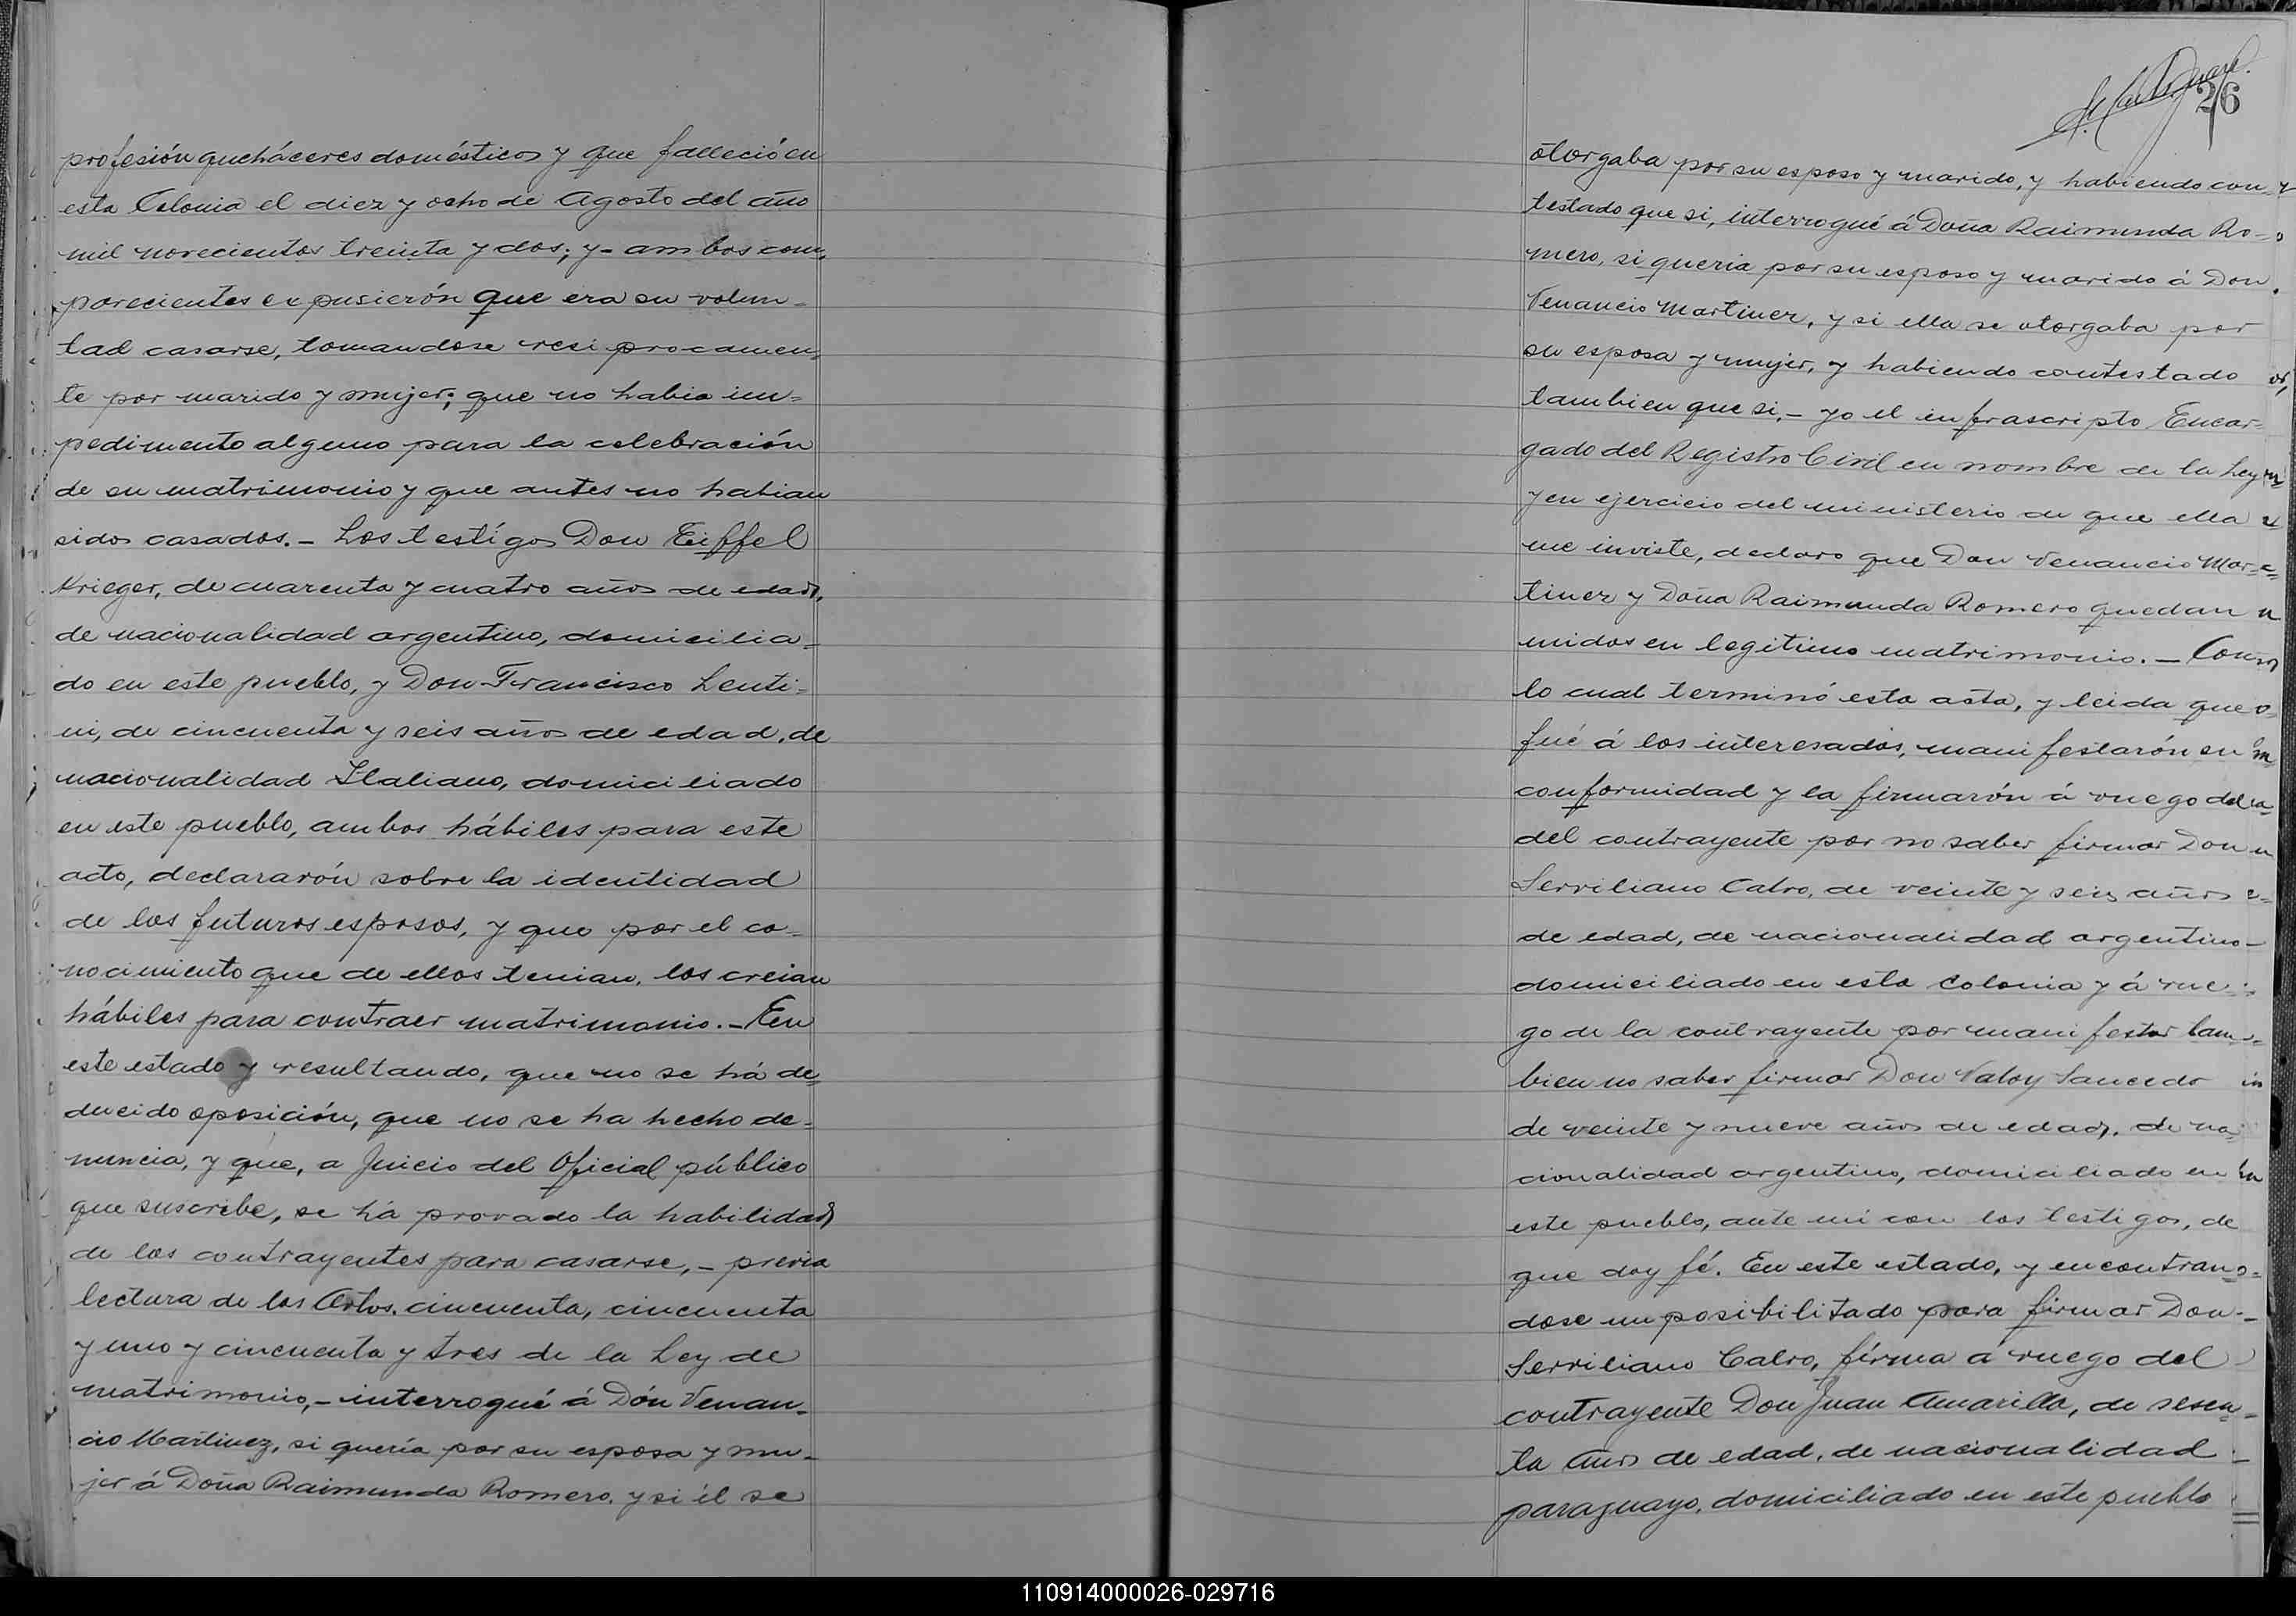 profesión queháceres domésticos y que falleció en
esta Colonia el diez y ocho de Agosto del año
mil novecientos treinta y dos; y- ambos com-
parecientes expusierón que era su volun-
tad casarse, tomandose resiprocamen-
te por marido y mujer; que no habia im-
pedimento alguno para la celebración
de su matrimonio y que antes no habian
sidos casados.- Los testígos Don Eiffel
Krieger, de cuarenta y cuatro años de edad,
de nacionalidad argentino, domicilia-
do en este pueblo, y Don Francisco Lenti-
ni, de cincuenta y seis años de edad, de
nacionalidad Italiano, domiciliado
en este pueblo, ambos hábiles para este
acto, declararón sobre la identidad
de los futuros esposos, y que por el co-
nocimiento que de ellos tenian, los creian
hábiles para contraer matrimonio.- En
este estado y resultando, que no se há de-
ducido oposición, que no se ha hecho de-
nuncia, y que, a Juicio del Oficial público
que suscribe, se há provado la habilidad
de los contrayentes para casarse,- previa
lectura de los Artos. cincuenta, cincuenta
y uno y cincuenta y tres de la Ley de
matrimonio,- interrogué á Dón Venan-
cio Martinez, si quería por su esposa y mu-
jer á Doña Raimunda Romero, y si él se
26
otorgaba por su esposo y marido, y habiendo con-
testado que si, interrogué á Doña Raimunda Ro-
mero, si queria por su esposo y marido á Don
Venancio Martinez, y si ella se otorgaba por
su esposa y mujer, y habiendo contestado
tambien que si,- yo el enfrascripto Encar-
gado del Registro Civil en nombre de la Ley
y en ejercicio del ministerio de que ella
me inviste, declaro que Don Venancio Mar-
tinez y Doña Raimunda Romero quedan
unidos en legitimo matrimonio.- Con
lo cual terminó esta acta, y leida que
fué á los interesados, manifestarón su
conformidad y la firmarón á ruego del
del contrayente por no saber firmar Don
Serviliano Calvo, de veinte y seis años
de edad, de nacionalidad argentino-
domiciliado en esta Colonia y á rue-
go de la contrayente por manifestar tam-
bien no saber firmar Don Valoy Saucedo
de veinte y nueve años de edad, de na-
cionalidad argentino, domiciliado en
este pueblo, ante mi con los testigos, de
que doy fé. En este estado, y encontran-
dose imposibilitado para firmar Don-
Serviliano Calvo, firma á ruego del
contrayente Don Juan Amarilla, de sesen-
ta años de edad, de nacionalidad
paraguayo, domiciliado en este pueblo
110914000026-029716